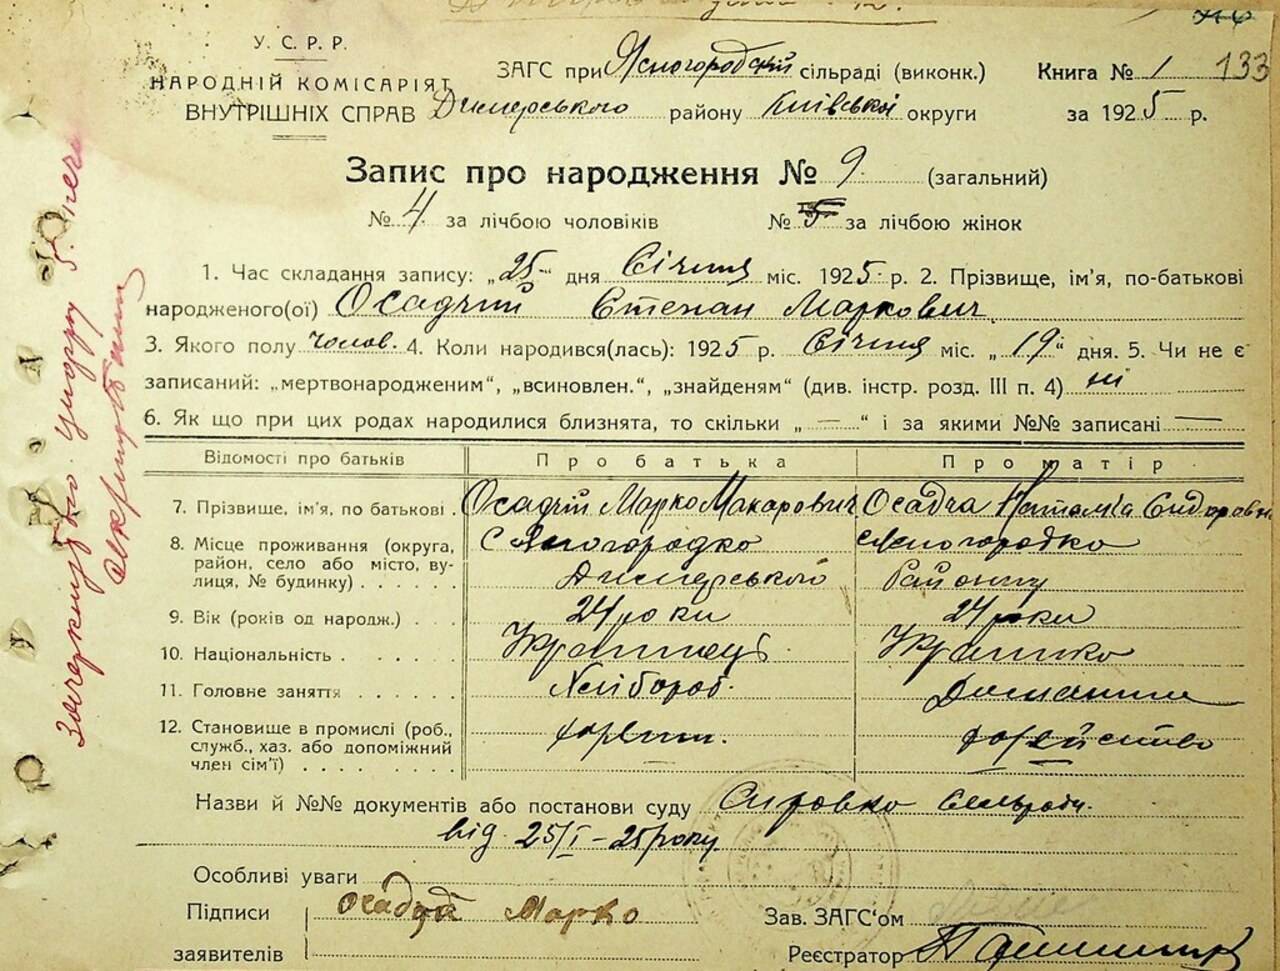 У. С. Р. Р.
НАРОДНІЙ КОМІСАРІЯТ
ВНУТРІШНІХ СПРАВ
ЗАГС при Ясногородській сільраді (виконк.)
Книга № 1 133
Димерського району Київської округи
за 1925 р.
Запис про народження № 9. (загальний)
№ 4 за лічбою чоловіків № за лічбою жінок
1. Час складання запису: „25" дня Січня міс. 1925 р. 2. Прізвище, ім'я, по-батькові
народженого(ої) Осадчий Степан Маркович
3. Якого полу чолов. 4. Коли народився(лась): 1925 р. Січня міс. „19" дня. 5. Чи не є
записаний: „мертвонародженим“, „всиновлен.“, „знайденям“ (див. інстр. розд. III п. 4) ні
6. Як що при цих родах народилися близнята, то скільки „ — “ і за якими №№ записані —
Відомості про батьків Про батька Про матір
7. Прізвище, ім'я, по батькові . Осадчій Марко Макарович Осадча Наталка Сидоровна
8. Місце проживання (округа, район, село або місто, вулиця, № будинку) . . . . . С Ясногородко Димерського Ясногородко Району
9. Вік (років од народж.) . . . 24 роки 24 роки
10. Національність . . . . . . Українець Українко
11. Головне заняття . . . . . . Хлібороб. Домашнє
12. Становище в промислі (роб., служб., хаз. або допоміжний член сім'ї) . . . . . . . .
Назви й №№ документів або постанови суду Сільради.
від 25/I – 25 року
Особливі уваги
Підписи заявителів Осадчій Марко
Зав. ЗАГС'ом
Реєстратор